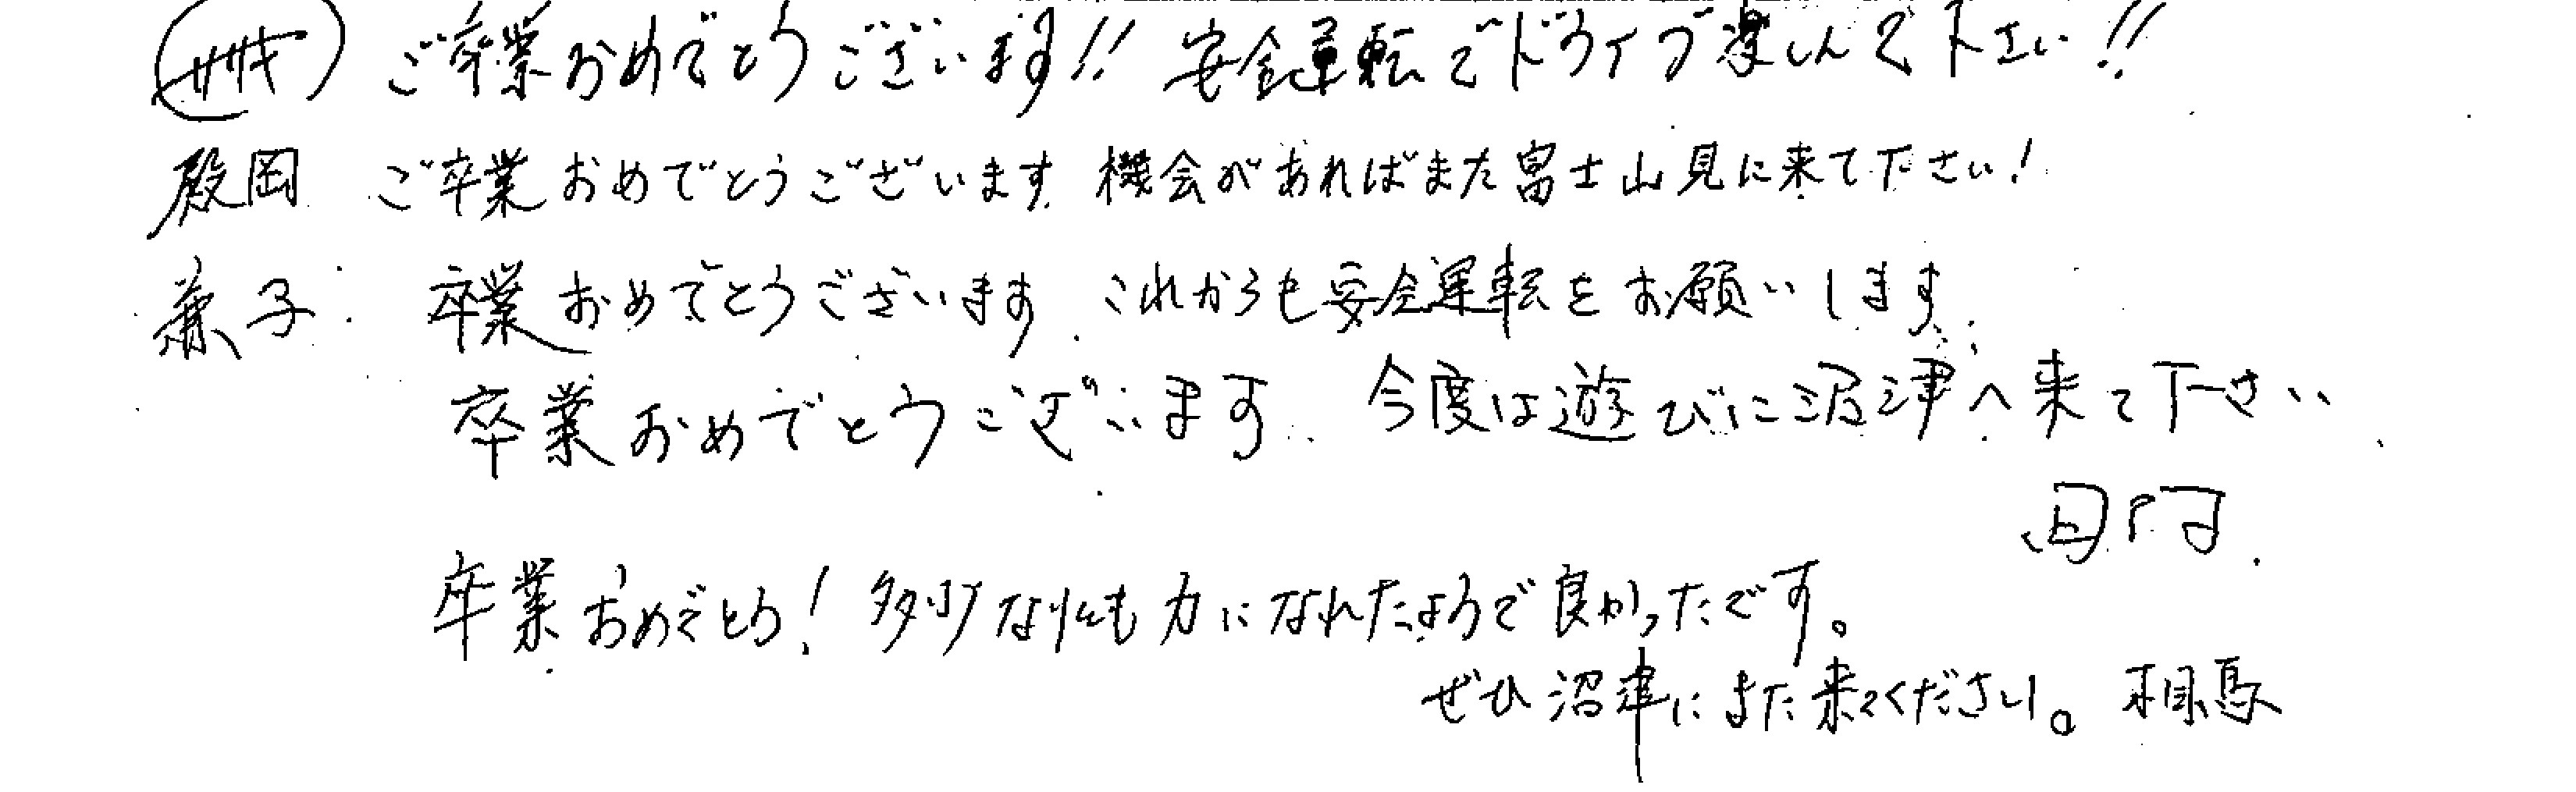 ササキ ご卒業おめでとうございます!! 安全運転でドライブ楽しんで下さい!!
殿岡 ご卒業おめでとうございます 機会があればまた富士山見に来て下さい!
兼子 卒業おめでとうございます。これからも安全運転をお願いします。
卒業おめでとうございます。今度は遊びに沼津へ来て下さい
卒業おめでとう! 多少なりとも力になれたようで良かったです。
ぜひ沼津にまた来てください。 相馬